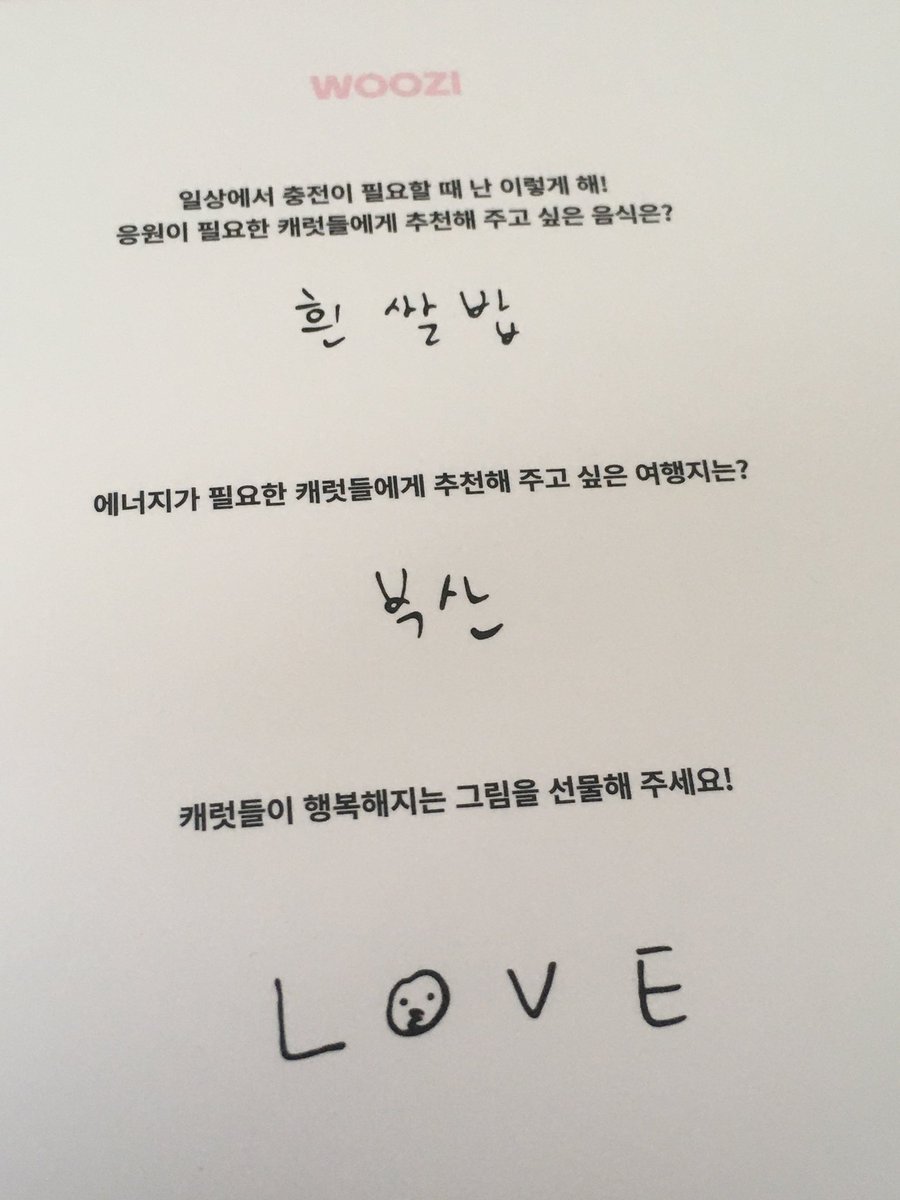 WOOZI
일상에서 충전이 필요할 때 난 이렇게 해!
응원이 필요한 캐럿들에게 추천해 주고 싶은 음식은?
흰 쌀밥
에너지가 필요한 캐럿들에게 추천해 주고 싶은 여행지는?
부산
캐럿들이 행복해지는 그림을 선물해 주세요!
LOVE